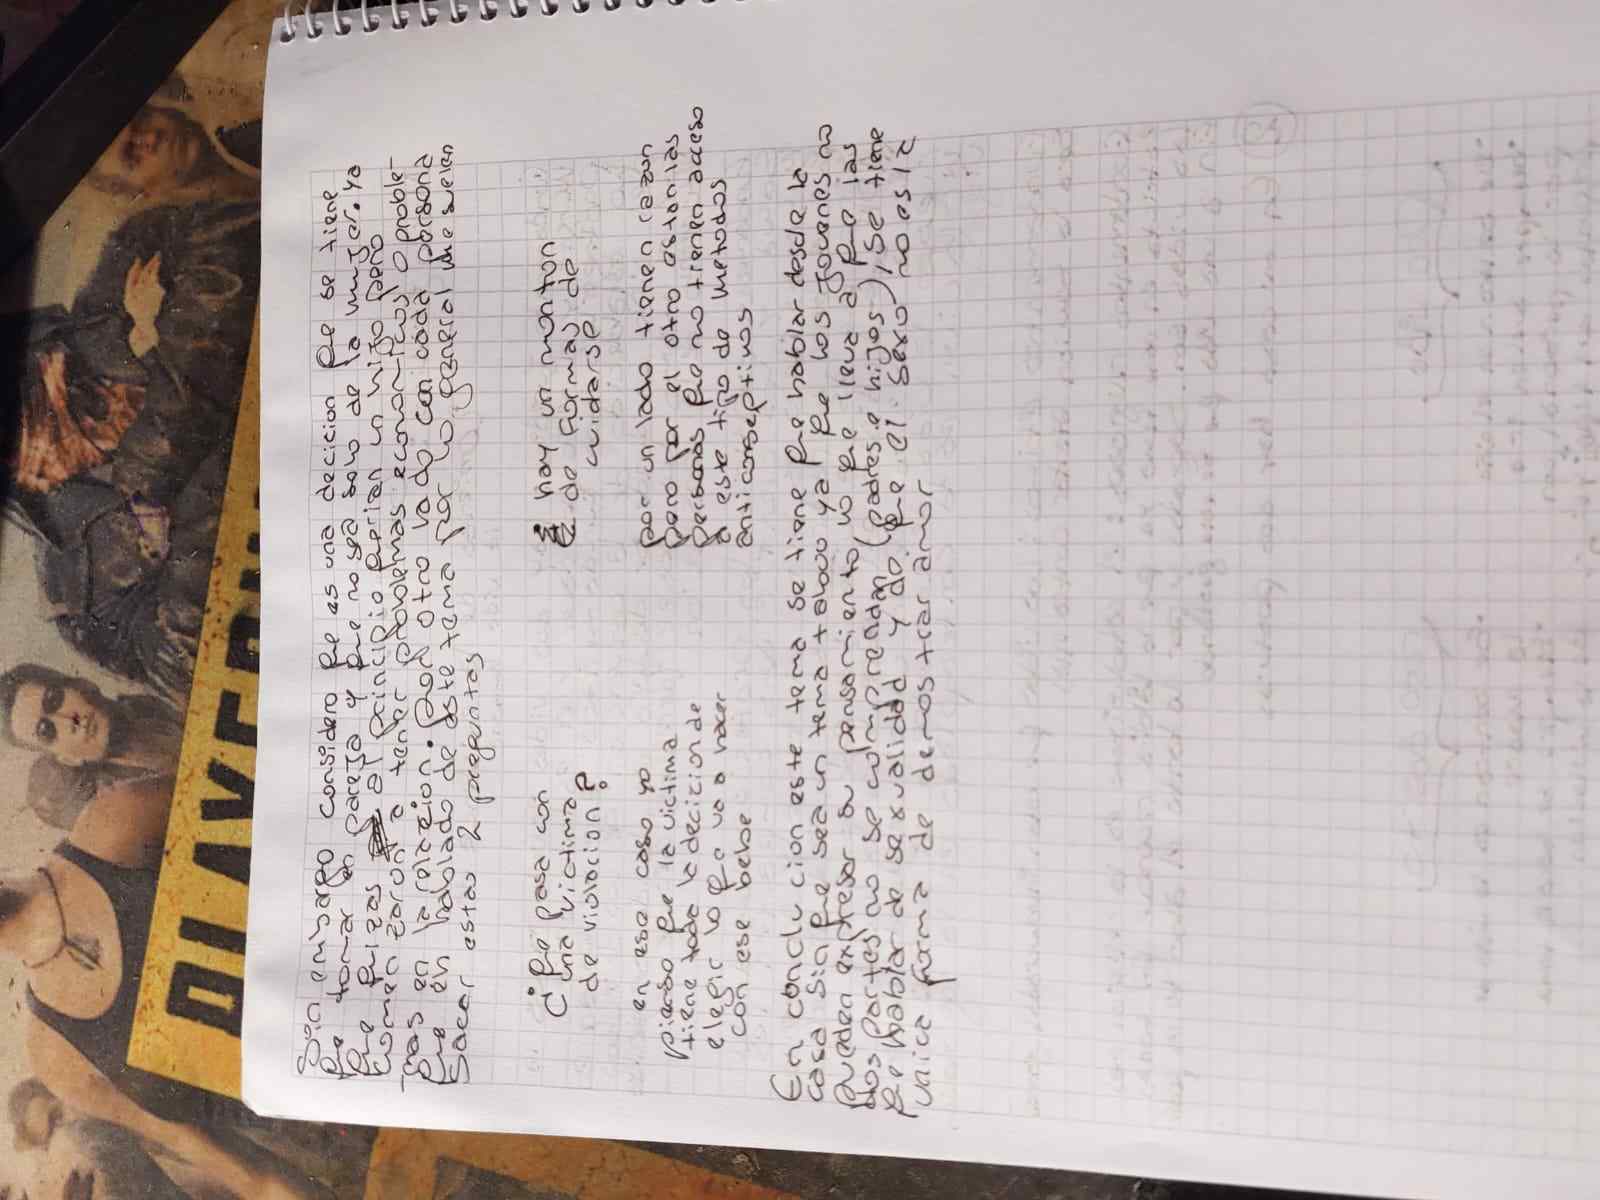 Sin embargo considero que es una decicion que se tiene
que tomar en pareja y que no sea solo de la mujer. Ya
que quizas al principio querian un hijo pero
comenzaron a tener problemas economicos o proble-
-mas en la relacion. Por otro lado con cada persona
que en hablado de este tema por lo general me suelen
sacar estas 2 preguntas
¿que pasa con
una victima
de violacion?
en ese caso yo
pienso que la victima
tiene toda la decicion de
elegir lo que va a hacer
con ese bebe
hay un monton
de formas de
cuidarse
por un lado tienen razon
pero por el otro estan las
personas que no tienen acceso
a este tipo de metodos
anticonseptivos
En conclucion este tema se tiene que hablar desde la
casa sin que sea un tema tabou ya que los jovenes no
pueden expresar su pensamiento lo que lleva a que las
dos partes no se comprendan (padres e hijos), se tiene
que hablar de sexualidad y do que el sexo no es la
unica forma de demostrar amor
PLAYERUN